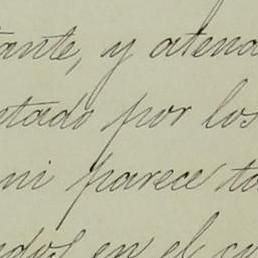 tante, y atend
otado por los
mi parece ta
ados en el cu